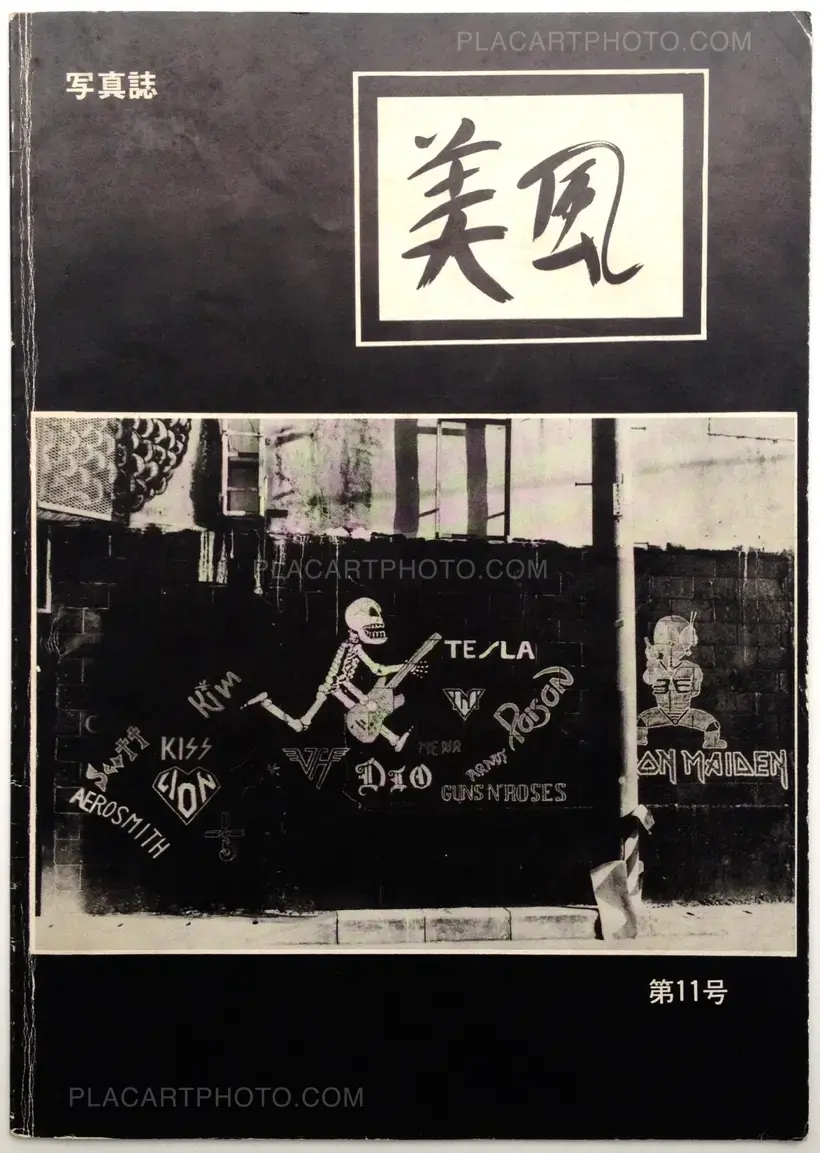 PLACARTPHOTO.COM
写真誌
美風
PLACARTPHOTO.COM
TESLA
Kim
Poison
Scott
KISS
LION
VH
DIO
ARMY
AEROSMITH
GUNS N' ROSES
IRON MAIDEN
第11号
PLACARTPHOTO.COM